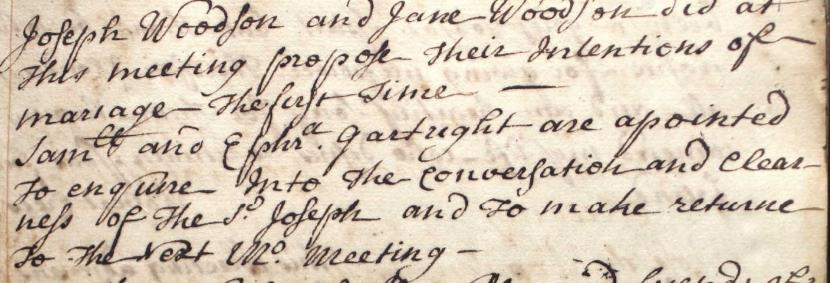 Joseph Woodson and Jane Woodson did at
this meeting propose their Intentions of
mariage the first time —
Samll and Ephra. Gartright are apointed
to enquire Into the Conversation and Clear-
ness of the sd. Joseph and to make returne
to the Next Mo. Meeting —